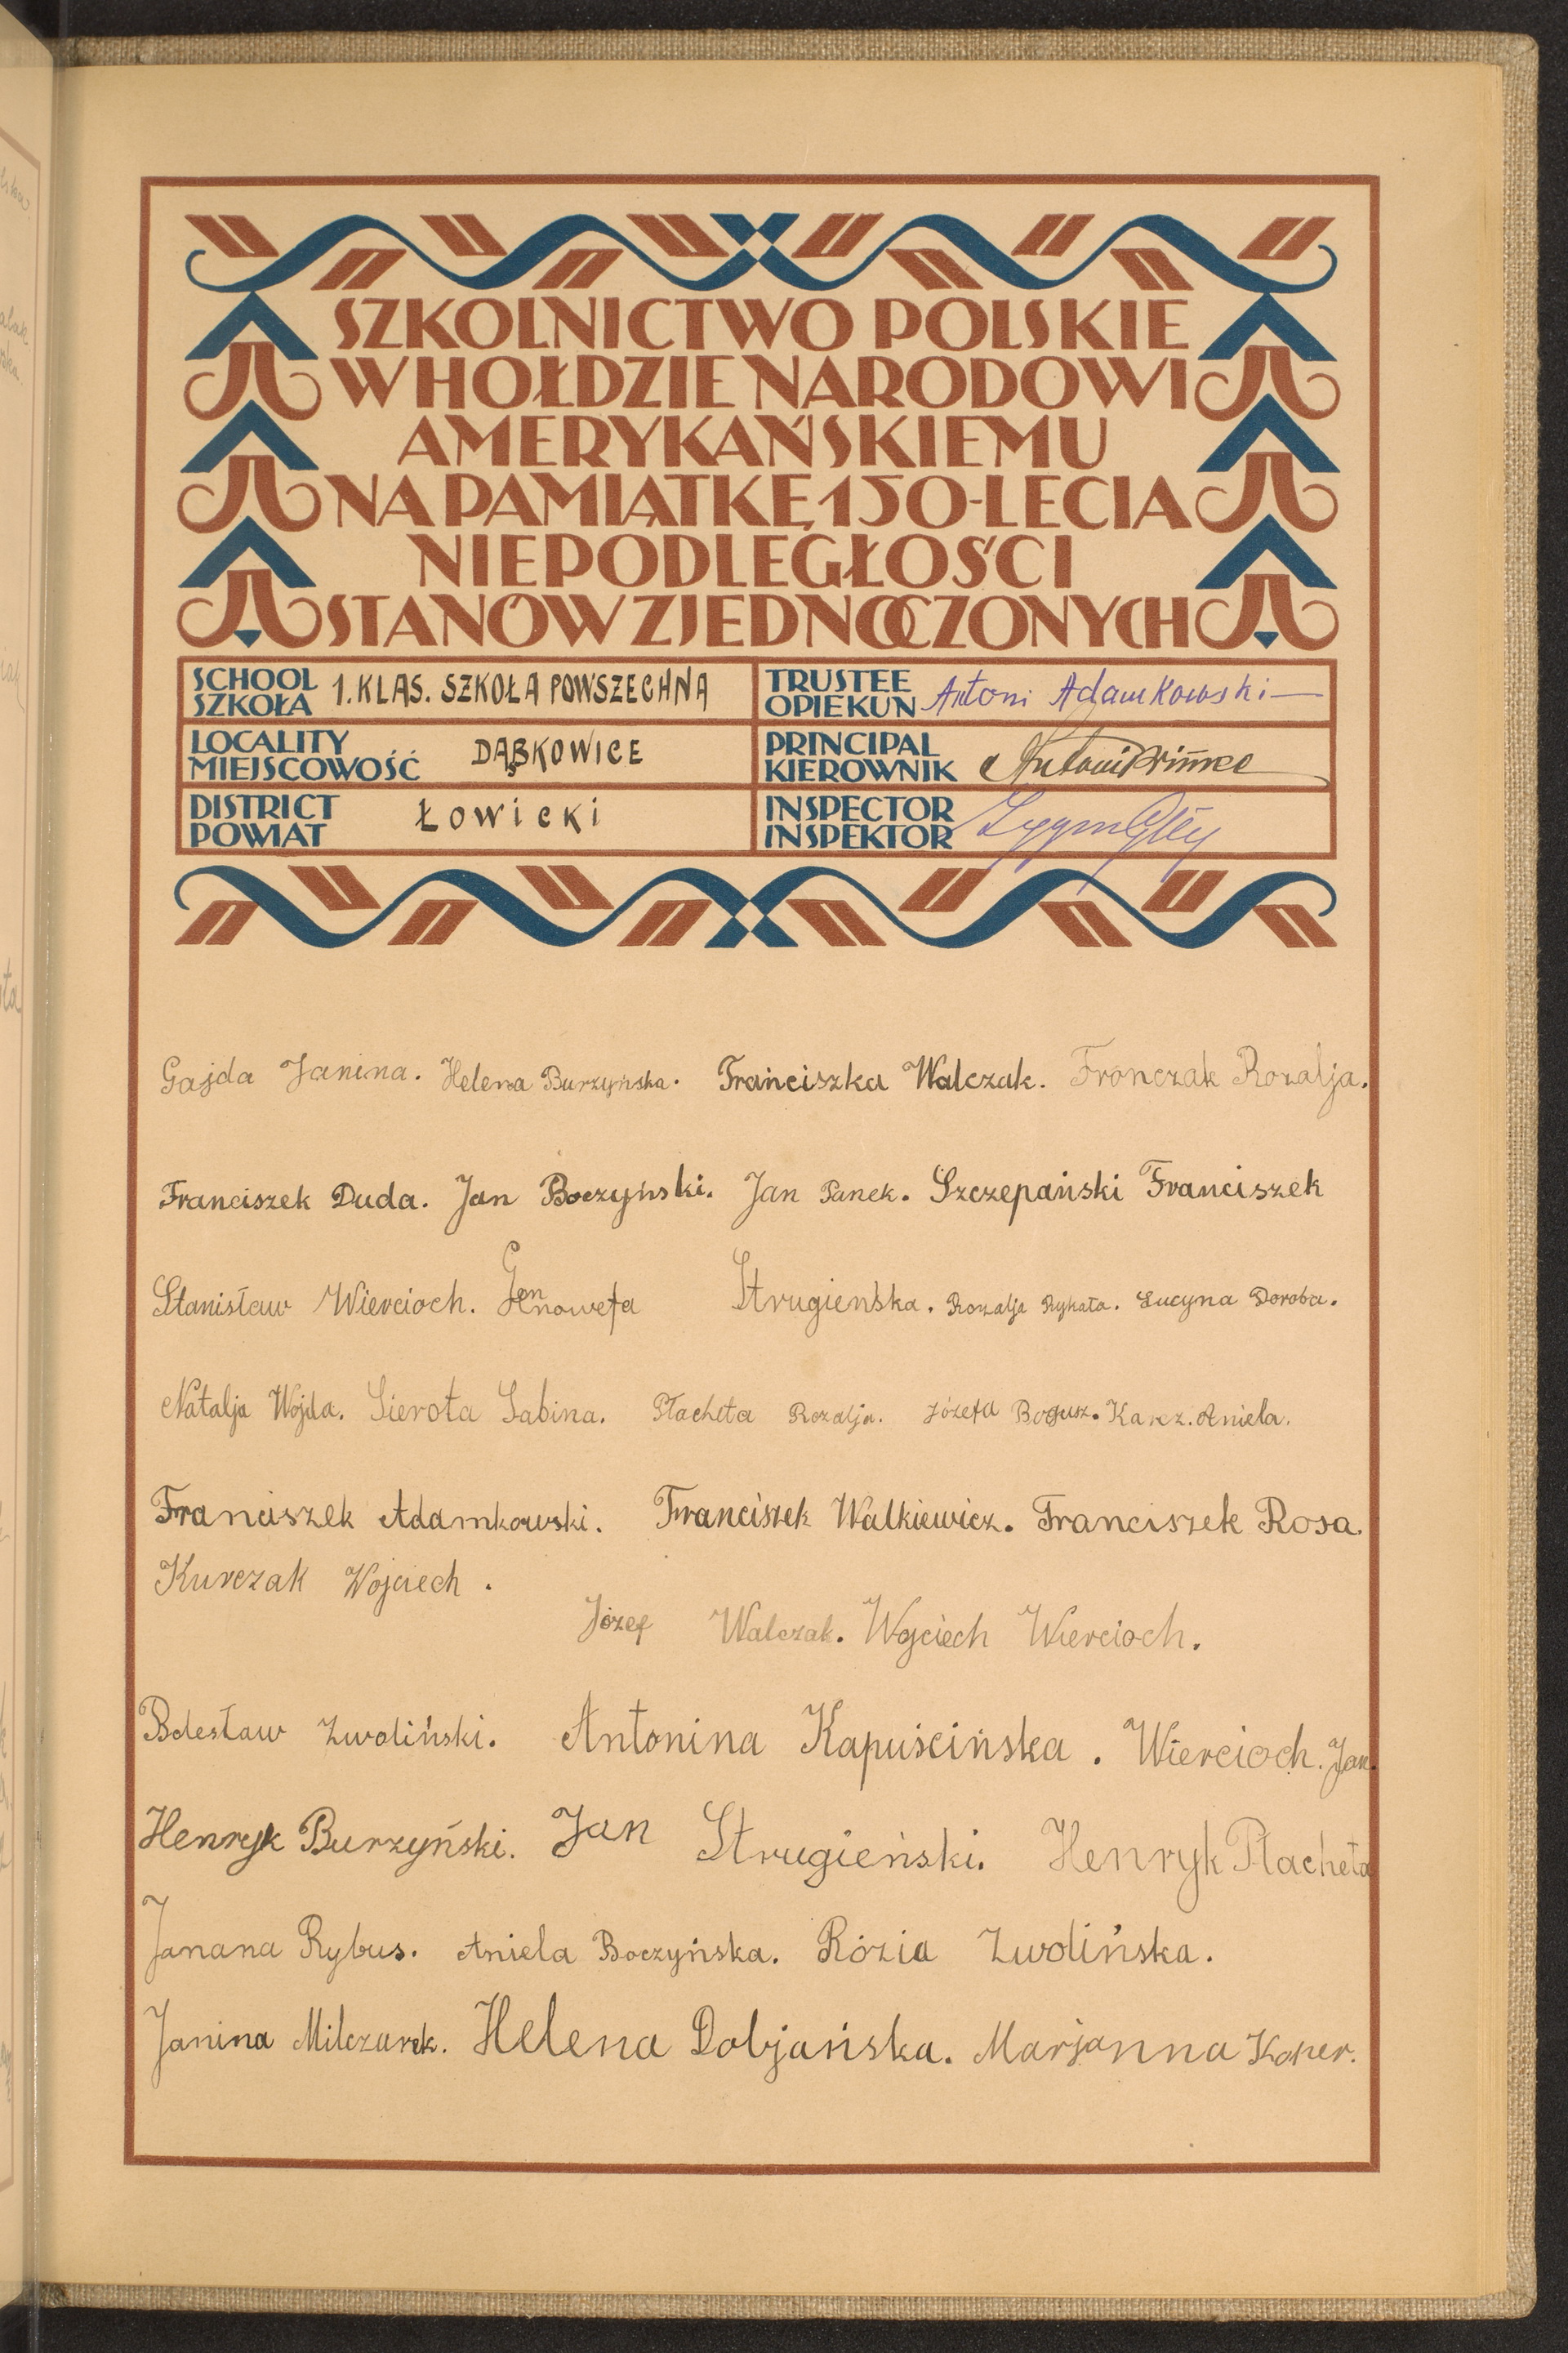 SZKOLNICTWO POLSKIE
W HOŁDZIE NARODOWI
AMERYKAŃSKIEMU
NA PAMIĄTKĘ 150-LECIA
NIEPODLEGŁOŚCI
STANÓW ZJEDNOCZONYCH
SCHOOL
SZKOŁA 1. KLAS. SZKOŁA POWSZECHNA
TRUSTEE
OPIEKUN Antoni Adamkowski
LOCALITY
MIEJSCOWOŚĆ DĄBKOWICE
PRINCIPAL
KIEROWNIK Antoni
DISTRICT
POWIAT ŁOWICKI
INSPECTOR
INSPEKTOR
Gajda Janina. Helena Burzyńska. Franciszka Walczak. Fronczak Rozalja.
Franciszek Duda. Jan Boczyński. Jan Panek. Szczepański Franciszek
Stanisław Wiercioch. Genowefa Strugieńska. Rozalja Rykała. Lucyna Doroba.
Natalja Wojda. Sierota Sabina. Płacheta Rozalja. Józefa Bogusz. Karz. Aniela.
Franciszek Adamkowski. Franciszek Walkiewicz. Franciszek Rosa.
Kurczak Wojciech.
Józef Walczak. Wojciech Wiercioch.
Bolesław Zwoliński. Antonina Kapuścińska. Wiercioch. Jan.
Henryk Burzyński. Jan Strugieński. Henryk Płacheta
Janana Rybus. Aniela Boczyńska. Rózia Zwolińska.
Janina Milczarek. Helena Dobjańska. Marjanna Koper.